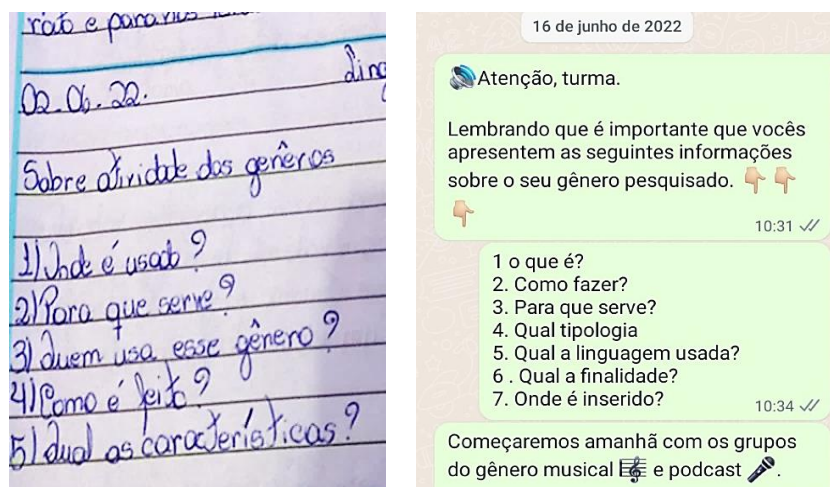 rato e para nos
Ling
02.06.22.
Sobre atividade dos genêros
1) Onde é usado?
2) Para que serve?
3) Quem usa esse gênero?
4) Como é feito?
5) Qual as características?
16 de junho de 2022
Atenção, turma.
Lembrando que é importante que vocês
apresentem as seguintes informações
sobre o seu gênero pesquisado.
10:31
1 o que é?
2. Como fazer?
3. Para que serve?
4. Qual tipologia
5. Qual a linguagem usada?
6 . Qual a finalidade?
7. Onde é inserido?
10:34
Começaremos amanhã com os grupos
do gênero musical e podcast .